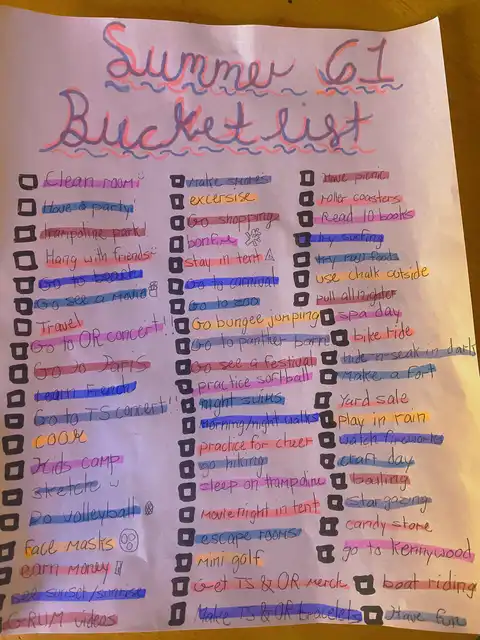 Summer 61
Bucket list
Clean room
Have a party
trampoline park
Hang with friends
Go to beach
Go see a movie
Travel
Go to OR concert!!
Go to Paris
Learn French
Go to TS concert!!
cook
Kids camp
sketch
Do volleyball
Face masks
earn money
see sunset/sunrise
GRUM videos
Make smores
excersise
Go shopping
bonfire
stay in tent
Go to carnival
Go to zoo
Go bungee jumping
Go to panther
Go see a festival
practice softball
night swims
Morning/night walks
practice for cheer
go hiking
sleep on trampoline
Movie night in tent
escape rooms
Mini golf
Get TS & OR merch
Make TS & OR bracelets
Have picnic
roller coasters
Read 10 books
try surfing
try new foods
use chalk outside
pull all nighter
spa day
bike ride
hide n seak in dark
Make a fort
Yard sale
Play in rain
watch fireworks
craft day
boating
stargazing
candy store
go to kennywood
boat riding
Have fun